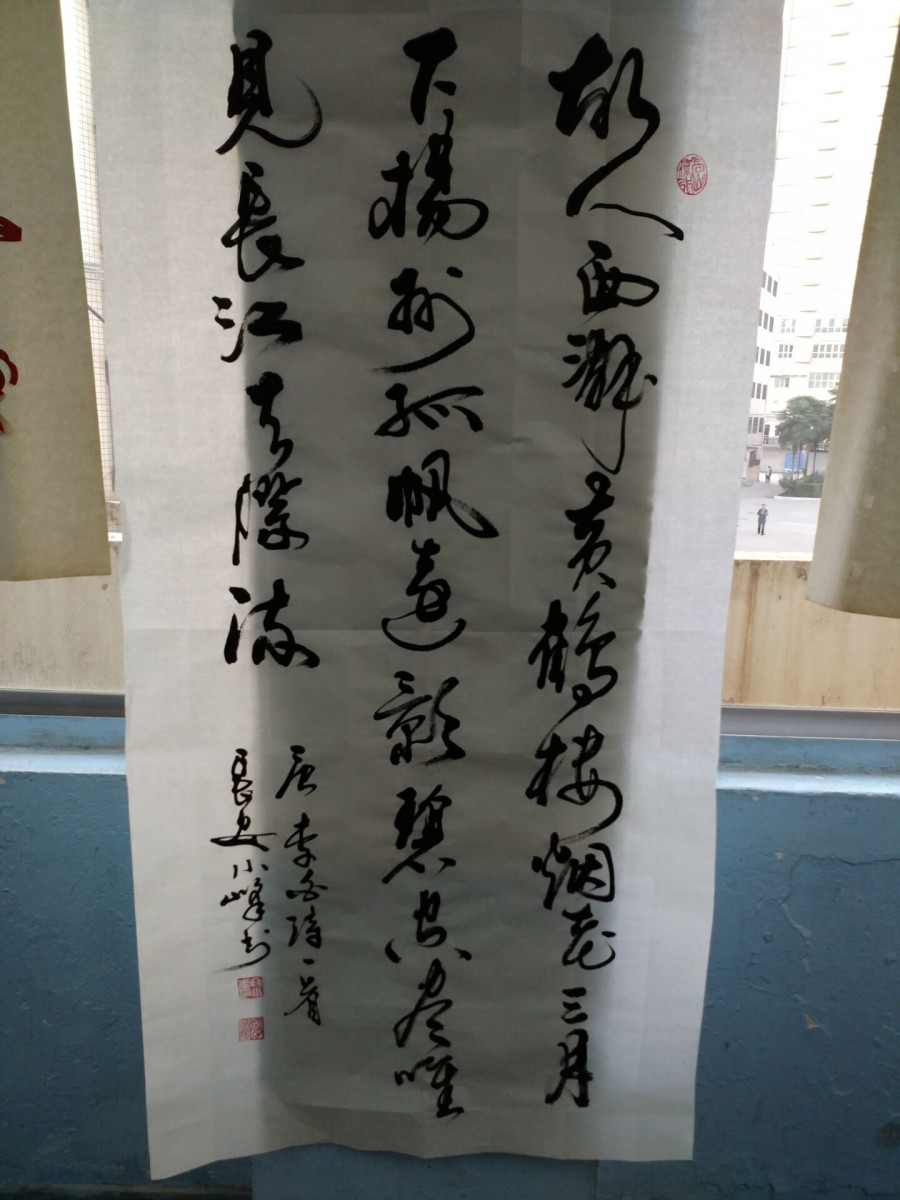 故人西辭黄鶴楼烟花三月
下揚州孤帆遠影碧空尽唯
見長江天際流
唐李白詩一首
長安小峰书